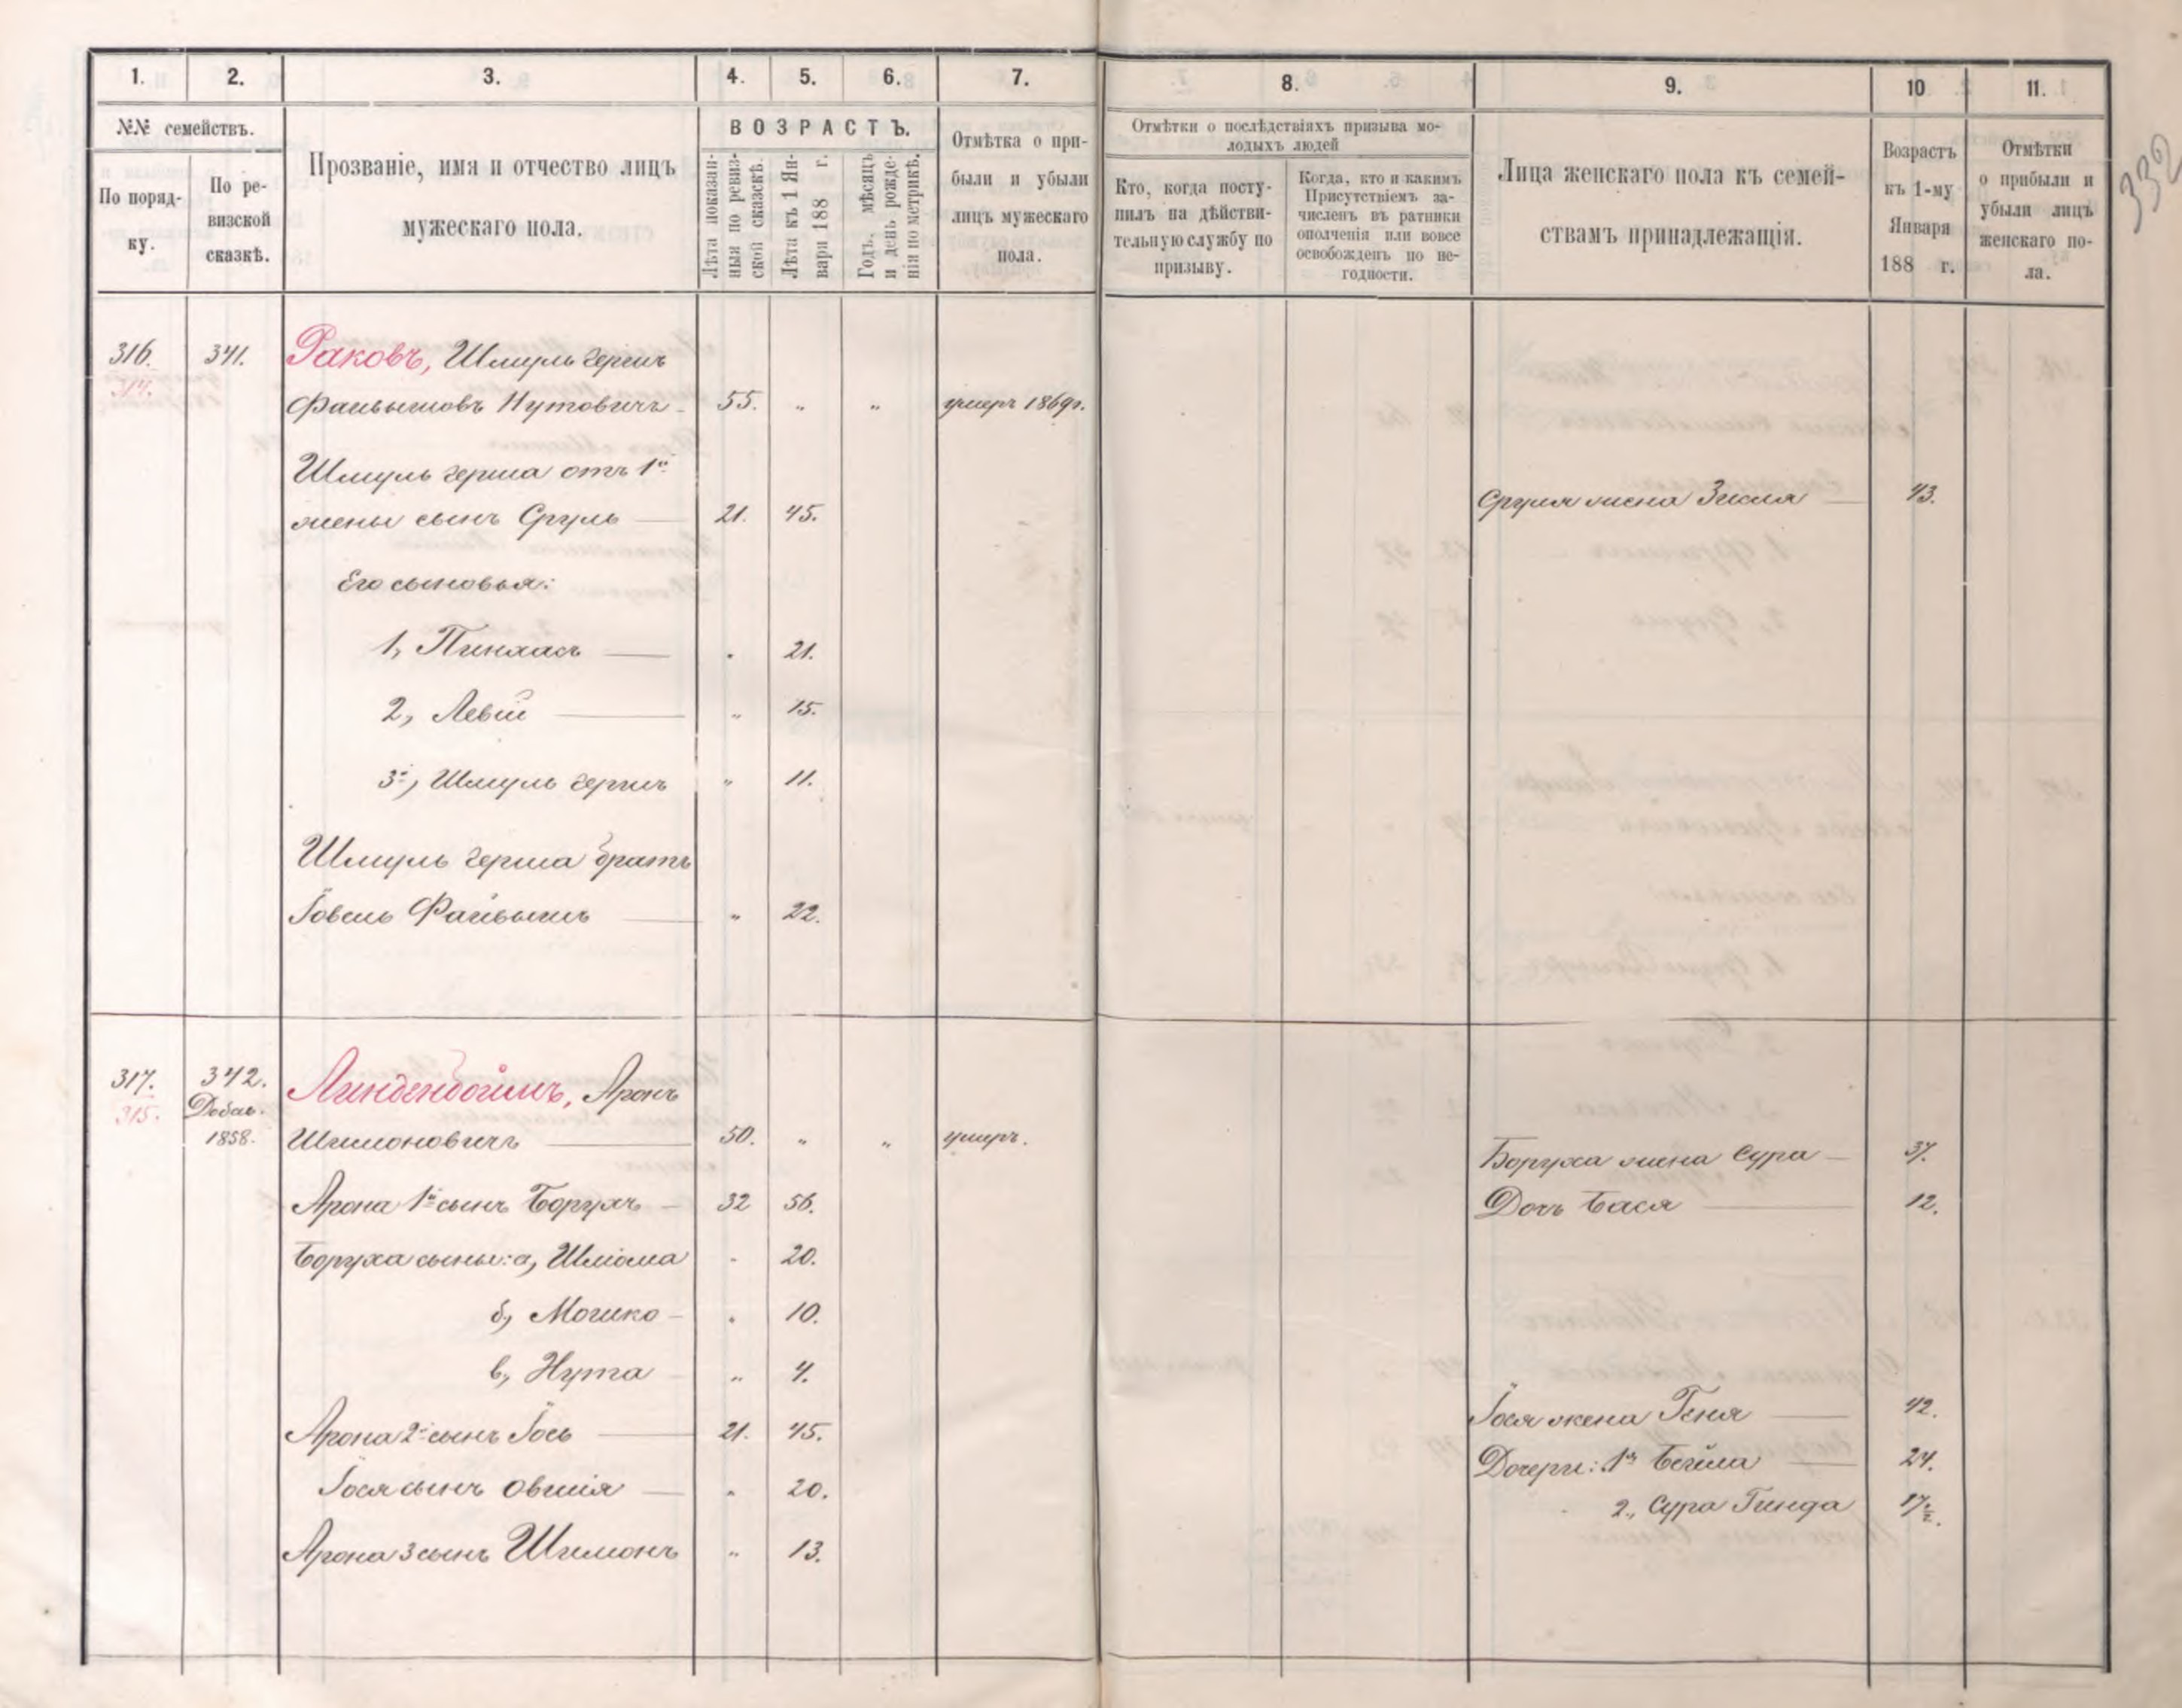 1. 2. 3. 4. 5. 6. 7. 8. 9. 10 11.
№№ семействъ.
По поряд-
ку.
По ре-
визской
сказкѣ.
Прозваніе, имя и отчество лицъ
мужескаго пола.
ВОЗРАСТЪ.
Лѣта показан-
ныя по ревиз-
ской сказкѣ.
Лѣта къ 1 Ян-
варя 188 г.
Годъ, мѣсяцъ
и день рожде-
нія по метрикѣ.
Отмѣтка о при-
были и убыли
лицъ мужескаго
пола.
Отмѣтки о послѣдствіяхъ призыва мо-
лодыхъ людей
Кто, когда посту-
пилъ на дѣйстви-
тельную службу по
призыву.
Когда, кто и какимъ
Присутствіемъ за-
численъ въ ратники
ополченія или вовсе
освобожденъ по не-
годности.
Лица женскаго пола къ семей-
ствамъ принадлежащія.
Возрастъ
къ 1-му
Января
188 г.
Отмѣтки
о прибыли и
убыли лицъ
женскаго по-
ла.
332
316. 341. Раковъ, Шмуль Гершъ
314.
Файвышовъ Нутовичъ 55. " " умеръ 1869г.
Шмуль Герша отъ 1й
жены сынъ Сруль 21. 45. Сруля жена Зисля 43.
Его сыновья:
1, Пинхасъ " 21.
2, Левій " 15.
3й, Шмуль Гершъ " 11.
Шмуль Герша братъ
Іовель Файвышъ " 22.
317. 342. Линденбоймъ, Аронъ
315. Добав.
1858. Шимоновичъ 50. " " умеръ.
Боруха жена Сура 37.
Арона 1й сынъ Борухъ 32 56. Дочь Бася 12.
Боруха сыны: а, Шліома " 20.
б, Мошко " 10.
в, Нута " 4.
Іося жена Геня 42.
Арона 2й сынъ Іось 21. 45.
Дочери: 1я Бейла 24.
Іося сынъ Овшія " 20.
2., Сура Гинда 17½.
Арона 3 сынъ Шимонъ " 13.